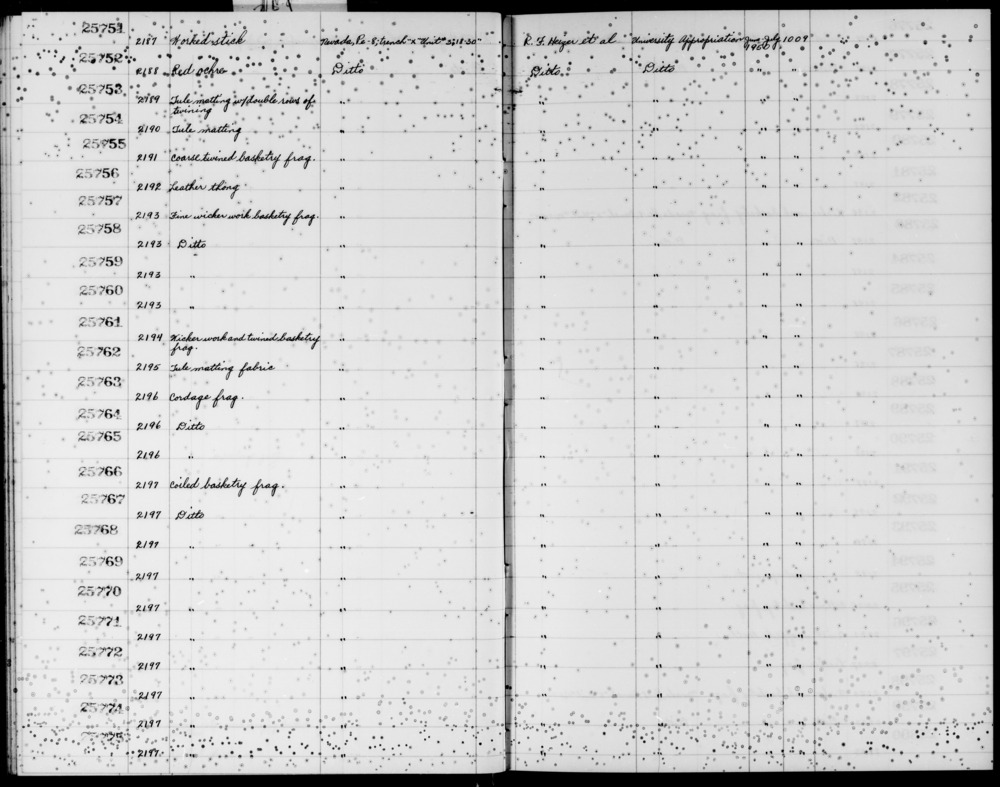 25751 2187 Worked stick Nevada, Pe-8, trench "x" Unit R. F. Heizer et al University Appropriation June-July 1009
1950
25752 2188 Red ochre Ditto Ditto Ditto " "
25753 2189 Tule matting w/double rows of " " " " "
twining
25754 2190 Tule matting " " " " "
25755 2191 Coarse twined basketry frag. " " " " "
25756 2192 Leather thong " " " " "
25757 2193 Fine wicker work basketry frag. " " " " "
25758 2193 Ditto " " " " "
25759 2193 " " " " " "
25760 2193 " " " " " "
25761 2194 Wicker work and twined basketry " " " " "
frag.
25762 2195 Tule matting fabric " " " " "
25763 2196 Cordage frag. " " " " "
25764 2196 Ditto " " " " "
25765 2196 " " " " " "
25766 2197 Coiled basketry frag. " " " " "
25767 2197 Ditto " " " " "
25768 2197 " " " " " "
25769 2197 " " " " " "
25770 2197 " " " " " "
25771 2197 " " " " " "
25772 2197 " " " " " "
25773 2197 " " " " " "
25774 2197 " " " " " "
25775 2197 " " " " " "